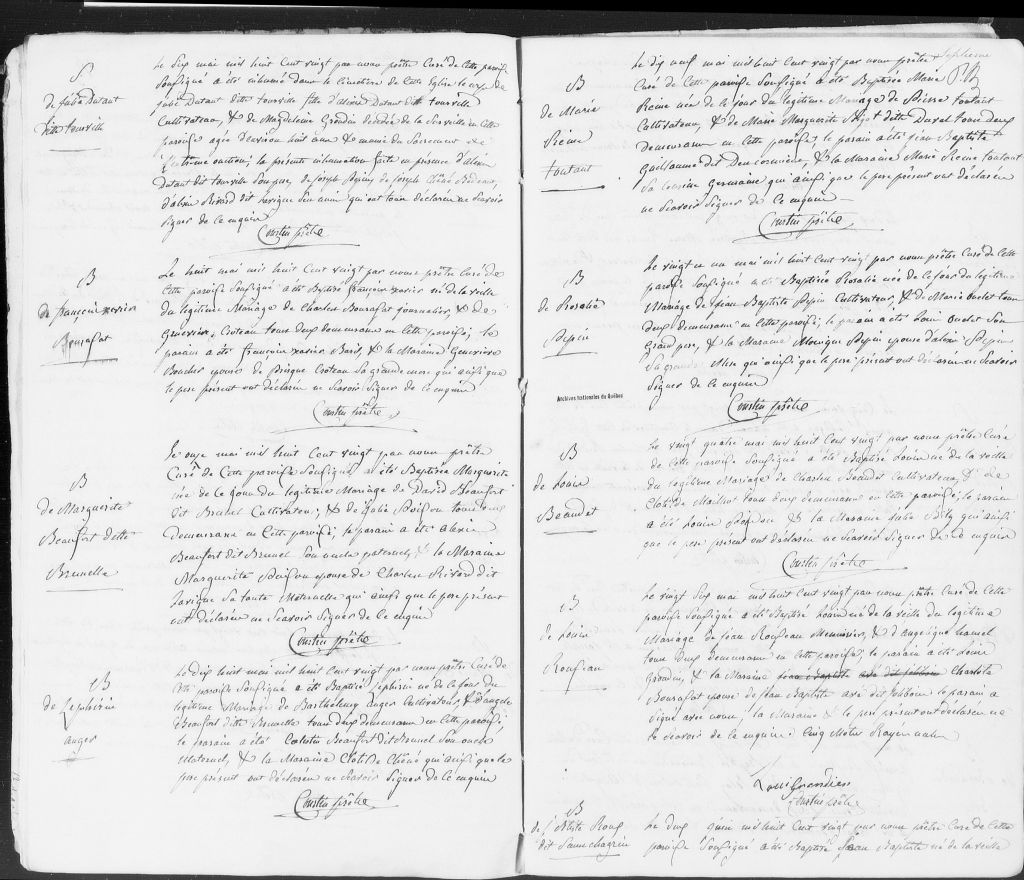 S
de fabie Dutaut
ditte tourville
Le Six mai mil huit Cent vingt par nous prêtre Curé de Cette paroisse
Soussigné a été inhumé dans le Cimetière de Cette Eglise le corps de
fabie Dutaut ditte tourville fille d'alexie Dutaut ditt tourville
Cultivateur, & de Magdeleine Grondin decedée de la Surveille en Cette
paroisse agée d'environ huit ans & munie du Sacrement de
l'Extrême onction; la présente inhumation faite en présence d'alexie
Dutaut dit tourville Son pere, de Joseph Pepin, de Joseph Chêné Bedeau,
d'alexie Rivard dit Lavigne Son ami qui ont tous déclarés ne Scavoir
Signer de Ce enquis
Courtin prêtre
B
de françois xavier
Bourafat
Le huit mai mil huit Cent vingt par nous prêtre Curé de
Cette paroisse Soussigné a été Baptisé françois xavier né de la veille
du légitime Mariage de Charles Bourafat journalier & de
Geneviève Croteau tous deux demeurans en Cette paroisse; le
parain a été françois xavier Baril, & la Maraine Geneviève
Boucher epouse de Croteau Sa grande mere qui ainsi que
le pere présent ont déclarés ne Scavoir Signer de Ce enquis
Courtin prêtre
B
de Marguerite
Beaufort ditte
Brunelle
Le onze mai mil huit Cent vingt par nous prêtre
Curé de Cette paroisse Soussigné a été Baptisée Marguerite
née de ce jour du légitime Mariage de David Beaufort
dit Brunel Cultivateur, & de Boisson tous deux
demeurans en Cette paroisse, le parain a été alexis
Beaufort dit Brunel Son oncle paternel, & la Maraine
Marguerite Boisson epouse de Charles Rivard dit
Lavigne Sa tante Maternelle qui ainsi que le pere présent
ont déclarés ne Scavoir Signer de Ce enquis
Courtin prêtre
B
de Zephirin
auger
Le dix huit mai mil huit Cent vingt par nous prêtre Curé de
Cette paroisse Soussigné a été Baptisé Zephirin né de ce jour du
légitime Mariage de Barthélemy auger Cultivateur, & d'angele
Beaufort ditte Brunelle tous deux demeurans en Cette paroisse;
le parain a été Celestin Beaufort dit Brunel Son oncle
Maternel, & la Maraine Clotilde Chêné qui ainsi que le
pere présent ont déclarés ne Scavoir Signer de Ce enquis
Courtin prêtre
Septieme
B
de Marie
Reine
toutant
Le dix neuf mai mil huit Cent vingt par nous prêtre
Curé de Cette paroisse Soussigné a été Baptisée Marie
Reine née de ce jour du légitime Mariage de Pierre toutant
Cultivateur, & de Marie Marguerite ditte Duval tous deux
demeurans en Cette paroisse; le parain a été jean Baptiste
Guillaume & la Maraine Marie Reine toutant
Sa Cousine Germaine qui ainsi que le pere présent ont déclarés
ne Scavoir Signer de Ce enquis
Courtin prêtre
B
de Rosalie
Pepin
Le vingt et un mai mil huit Cent vingt par nous prêtre Curé de Cette
paroisse Soussigné a été Baptisée Rosalie née de ce jour du légitime
Mariage de jean Baptiste Pepin Cultivateur, & de Marie ouelet tous
deux demeurans en Cette paroisse; le parain a été Louis ouelet Son
Grand pere, & la Maraine Monique Pepin epouse d'alexis Pepin
Sa grande Mere qui ainsi que le pere présent ont déclarés ne Scavoir
Signer de Ce enquis
Archives nationales du Québec
Courtin prêtre
B
de Louis
Beaudet
Le vingt quatre mai mil huit Cent vingt par nous prêtre Curé
de Cette paroisse Soussigné a été Baptisé Louis né de la veille
du légitime Mariage de Charles Beaudet Cultivateur, & de
Clotilde Mailhot tous deux demeurans en Cette paroisse; le parain
a été Louis & la Maraine julie qui ainsi
que le pere présent ont déclarés ne Scavoir Signer de Ce enquis
Courtin prêtre
B
de Louis
Rousseau
Le vingt Six mai mil huit Cent vingt par nous prêtre Curé de Cette
paroisse Soussigné a été Baptisé Louis né de la veille du légitime
Mariage de jean Rousseau Menuisier, & d'angelique hamel
tous deux demeurans en Cette paroisse; le parain a été Louis
Grondin, & la Maraine jean Baptiste Charlotte
Bourafat epouse de jean Baptiste le parain a
Signé avec nous; la Maraine & le pere présent ont déclarés ne
le Scavoir de Ce enquis. Cinq Mots Rayés nuls
Louis Grondin
Courtin prêtre
B
de j. Btiste Roux
dit Sanschagrin
Le deux juin mil huit Cent vingt par nous prêtre Curé de Cette
paroisse Soussigné a été Baptisé jean Baptiste né de la veille